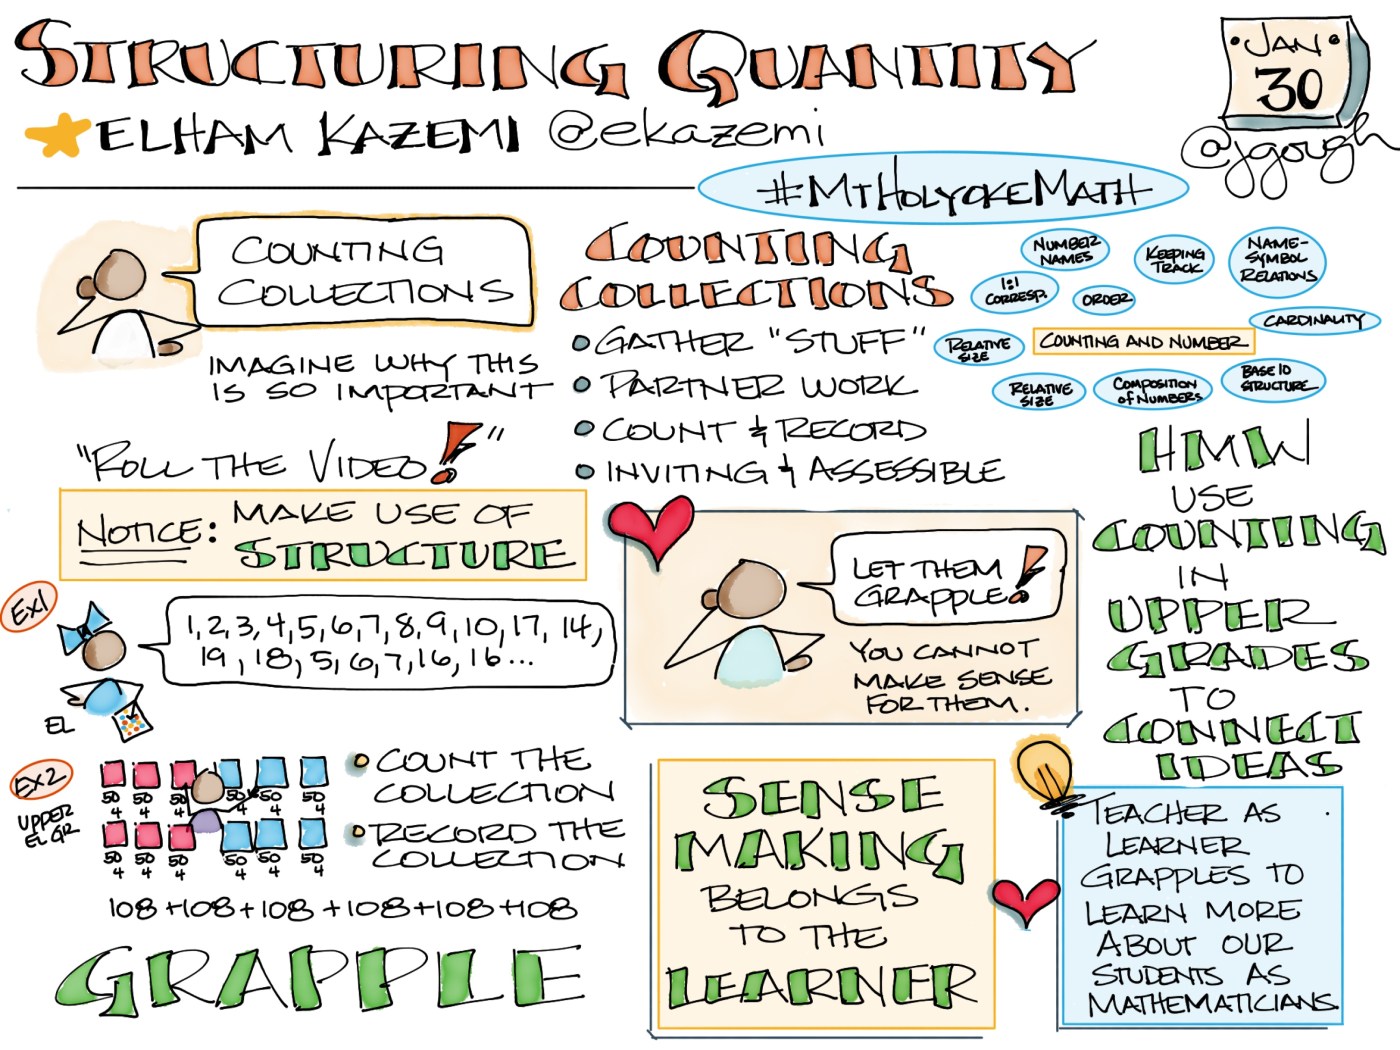 STRUCTURING QUANTITY
ELHAM KAZEMI @ekazemi
JAN
30
@jgough
#MTHOLYOKEMATH
COUNTING
COLLECTIONS
IMAGINE WHY THIS
IS SO IMPORTANT
"ROLL THE VIDEO!"
NOTICE: MAKE USE OF
STRUCTURE
EX1
1, 2, 3, 4, 5, 6, 7, 8, 9, 10, 17, 14,
19, 18, 5, 6, 7, 16, 16...
EL
EX2
UPPER
EL GR
50 50 50 50 50 50
4 4 4 4 4 4
50 50 50 50 50 50
4 4 4 4 4 4
COUNT THE
COLLECTION
RECORD THE
COLLECTION
108+108+108+108+108+108
GRAPPLE
COUNTING
COLLECTIONS
GATHER "STUFF"
PARTNER WORK
COUNT & RECORD
INVITING & ASSESSIBLE
NUMBER
NAMES
KEEPING
TRACK
NAME-
SYMBOL
RELATIONS
1:1
CORRESP.
ORDER
CARDINALITY
RELATIVE
SIZE
COUNTING AND NUMBER
RELATIVE
SIZE
COMPOSITION
OF NUMBERS
BASE 10
STRUCTURE
LET THEM
GRAPPLE!
YOU CANNOT
MAKE SENSE
FOR THEM.
HMW
USE
COUNTING
IN
UPPER
GRADES
TO
CONNECT
IDEAS
SENSE
MAKING
BELONGS
TO THE
LEARNER
TEACHER AS
LEARNER
GRAPPLES TO
LEARN MORE
ABOUT OUR
STUDENTS AS
MATHEMATICIANS.